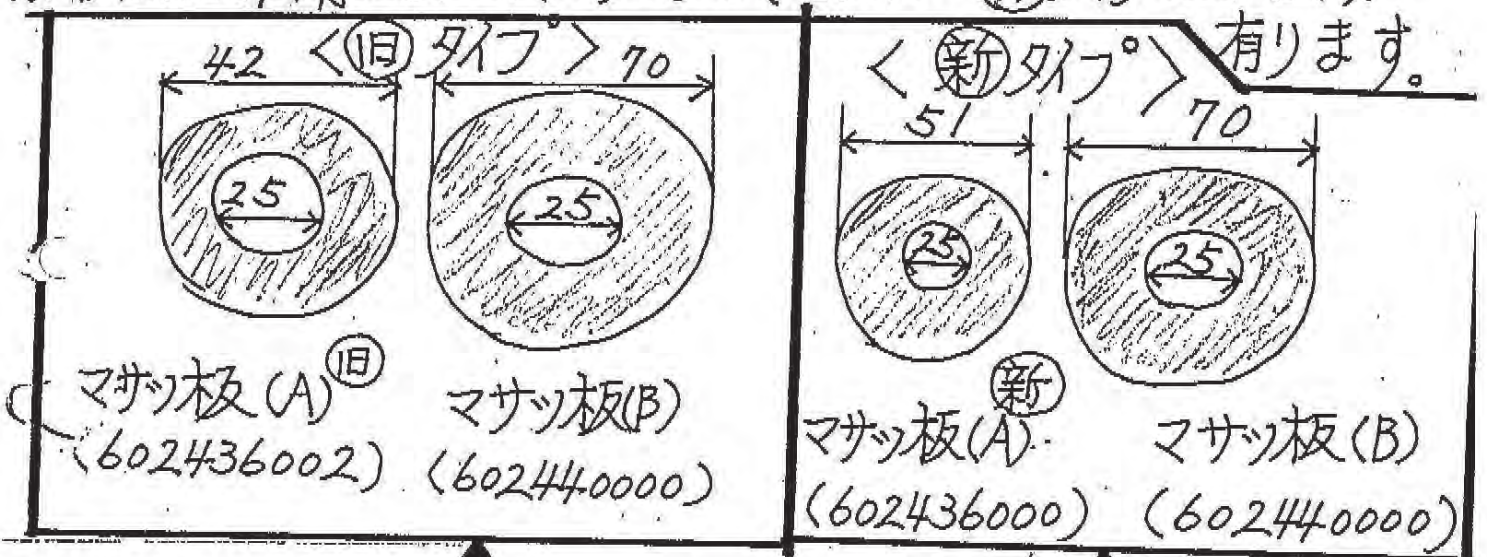 有ります。
<旧タイプ>
42
70
25
25
マサツ板(A)旧
(602436002)
マサツ板(B)
(602440000)
<新タイプ>
51
70
25
25
マサツ板(A)新
(602436000)
マサツ板(B)
(602440000)